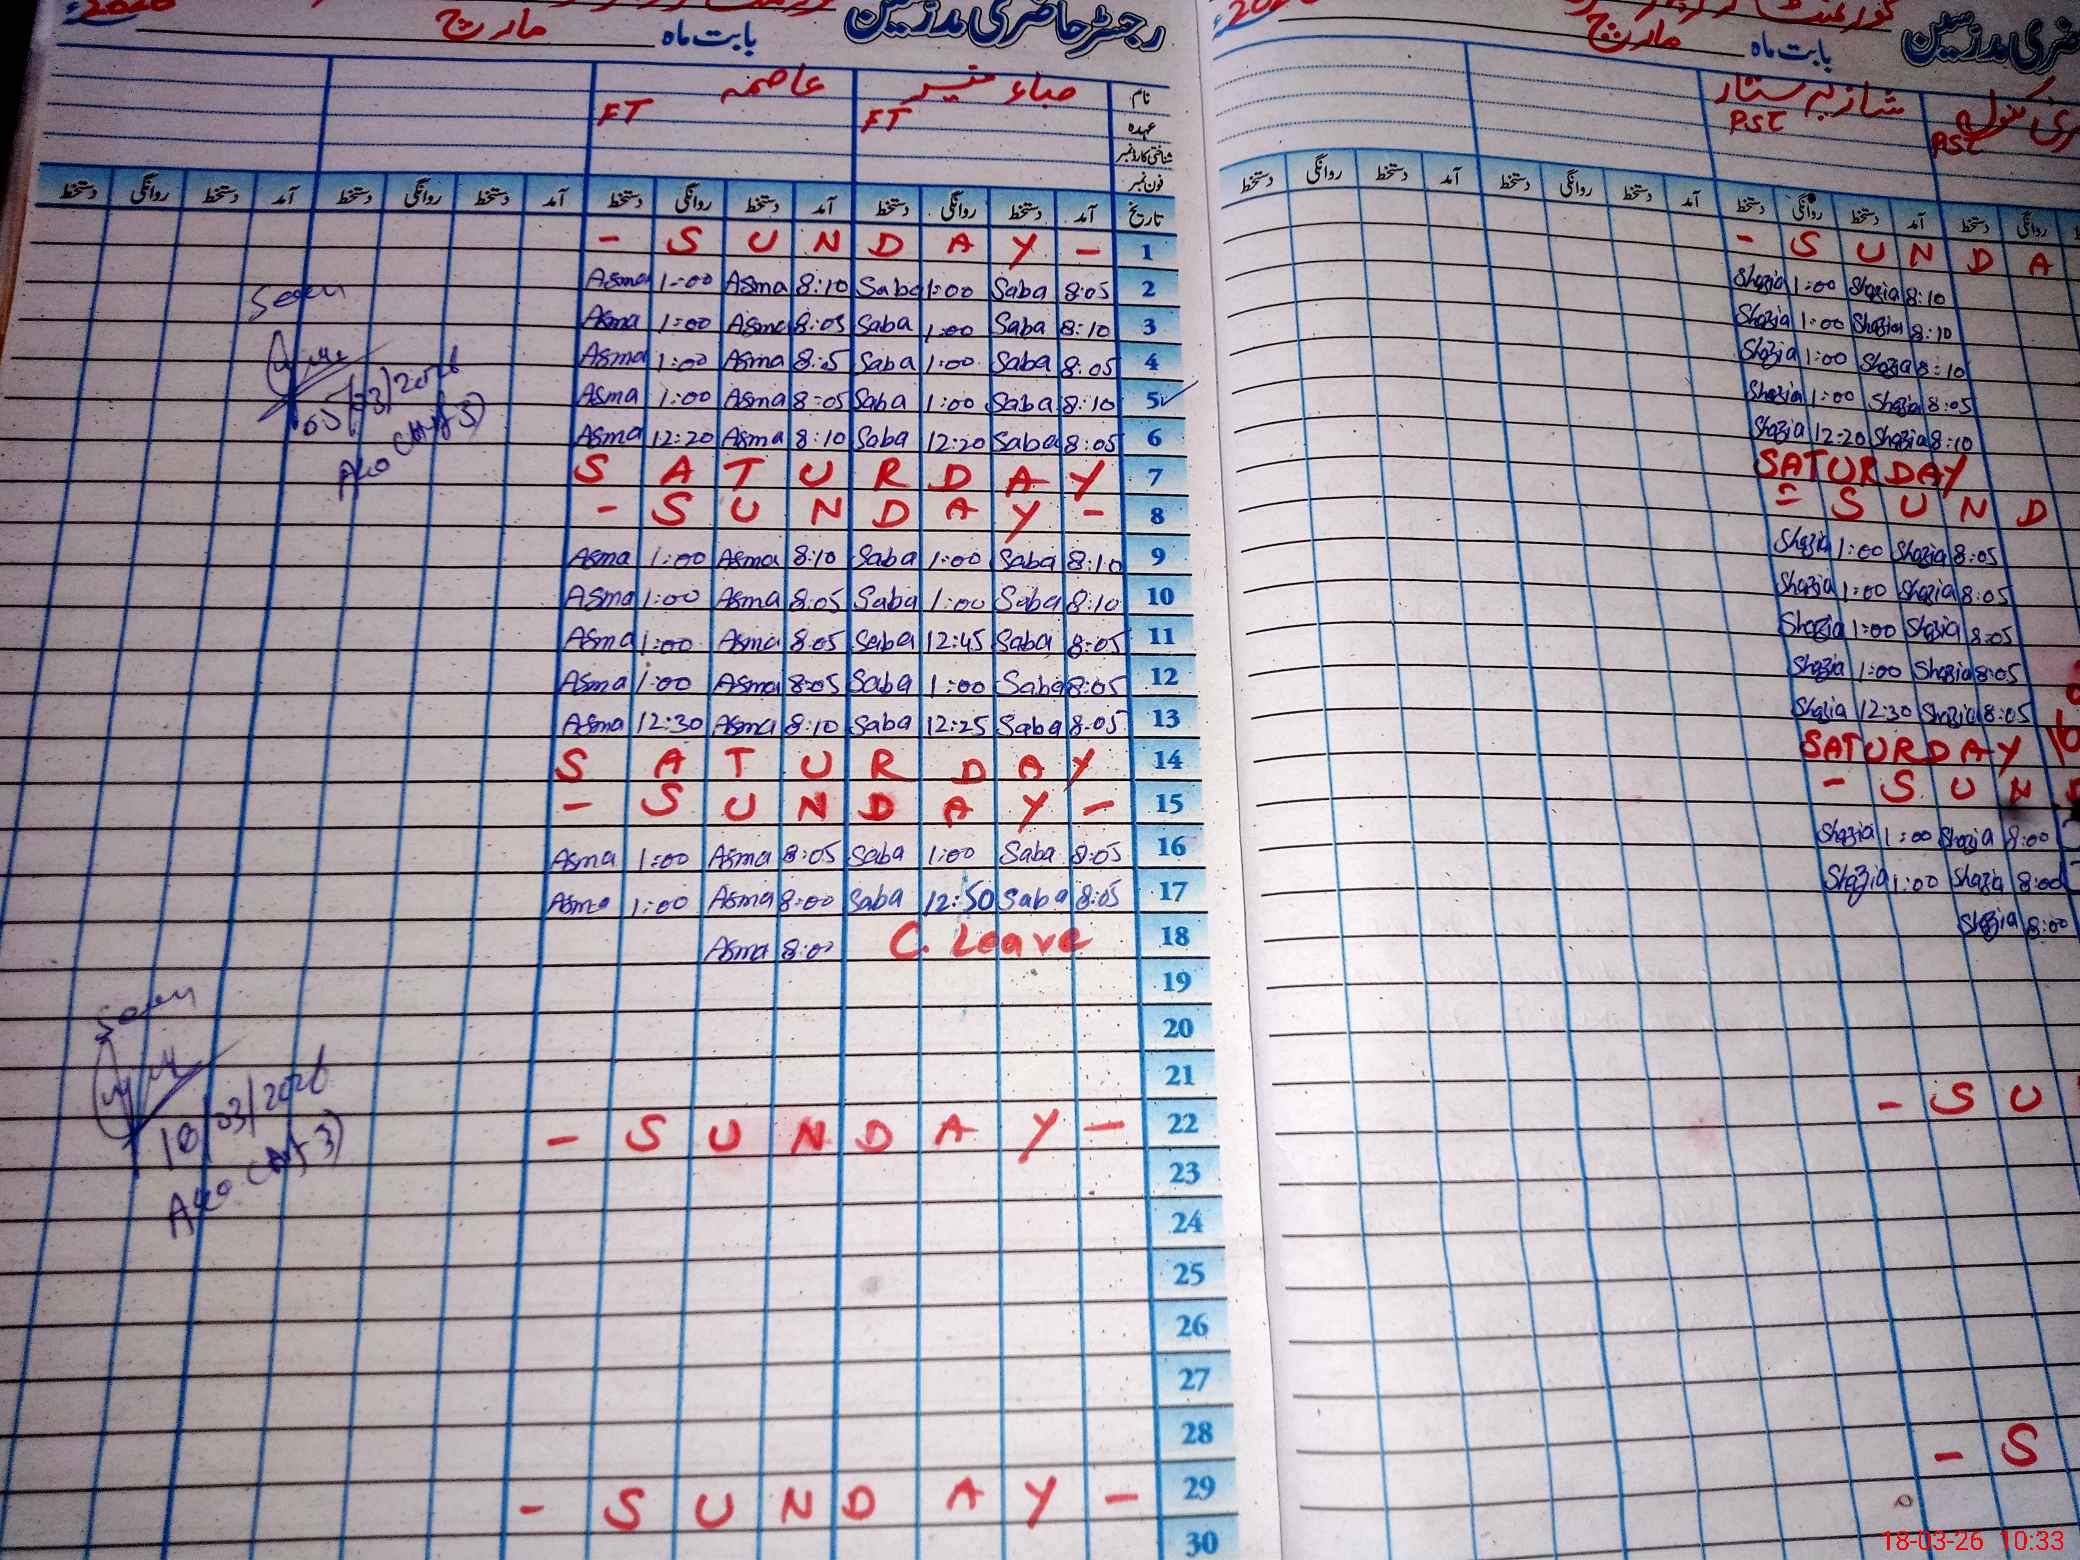 رجسٹر حاضری مدرسین
بابت ماہ مارچ 2026ء
نام صباء منیر عاصمہ
عہدہ FT FT
شناختی کارڈ نمبر
فون نمبر
تاریخ آمد دستخط روانگی دستخط آمد دستخط روانگی دستخط آمد دستخط روانگی دستخط آمد دستخط روانگی دستخط
- S U N D A Y - 1
Asma 1:00 Asma 8:10 Saba 1:00 Saba 8:05 2
Asma 1:00 Asma 8:05 Saba 1:00 Saba 8:10 3
Asma 1:00 Asma 8:5 Saba 1:00 Saba 8:05 4
Asma 1:00 Asma 8:05 Saba 1:00 Saba 8:10 5
Asma 12:20 Asma 8:10 Saba 12:20 Saba 8:05 6
S A T U R D A Y 7
- S U N D A Y - 8
Asma 1:00 Asma 8:10 Saba 1:00 Saba 8:10 9
Asma 1:00 Asma 8:05 Saba 1:00 Saba 8:10 10
Asma 1:00 Asma 8:05 Saba 12:45 Saba 8:05 11
Asma 1:00 Asma 8:05 Saba 1:00 Saba 8:05 12
Asma 12:30 Asma 8:10 Saba 12:25 Saba 8:05 13
S A T U R D A Y 14
- S U N D A Y - 15
Asma 1:00 Asma 8:05 Saba 1:00 Saba 8:05 16
Asma 1:00 Asma 8:00 Saba 12:50 Saba 8:05 17
Asma 8:00 C. Leave 18
19
20
21
- S U N D A Y - 22
23
24
25
26
27
28
- S U N D A Y - 29
30
Seen
05/03/2026
Seen
18/03/2026
بابت ماہ مارچ
شازیہ ستار
PST PST
آمد دستخط روانگی دستخط آمد دستخط روانگی دستخط آمد دستخط روانگی دستخط
- S U N D A
Shazia 1:00 Shazia 8:10
Shazia 1:00 Shazia 8:10
Shazia 1:00 Shazia 8:10
Shazia 1:00 Shazia 8:05
Shazia 12:20 Shazia 8:10
SATURDAY
- S U N D
Shazia 1:00 Shazia 8:05
Shazia 1:00 Shazia 8:05
Shazia 1:00 Shazia 8:05
Shazia 1:00 Shazia 8:05
Shazia 12:30 Shazia 8:05
SATURDAY
- S U N
Shazia 1:00 Shazia 8:00
Shazia 1:00 Shazia 8:00
Shazia 8:00
- S U
- S
18-03-26 10:33